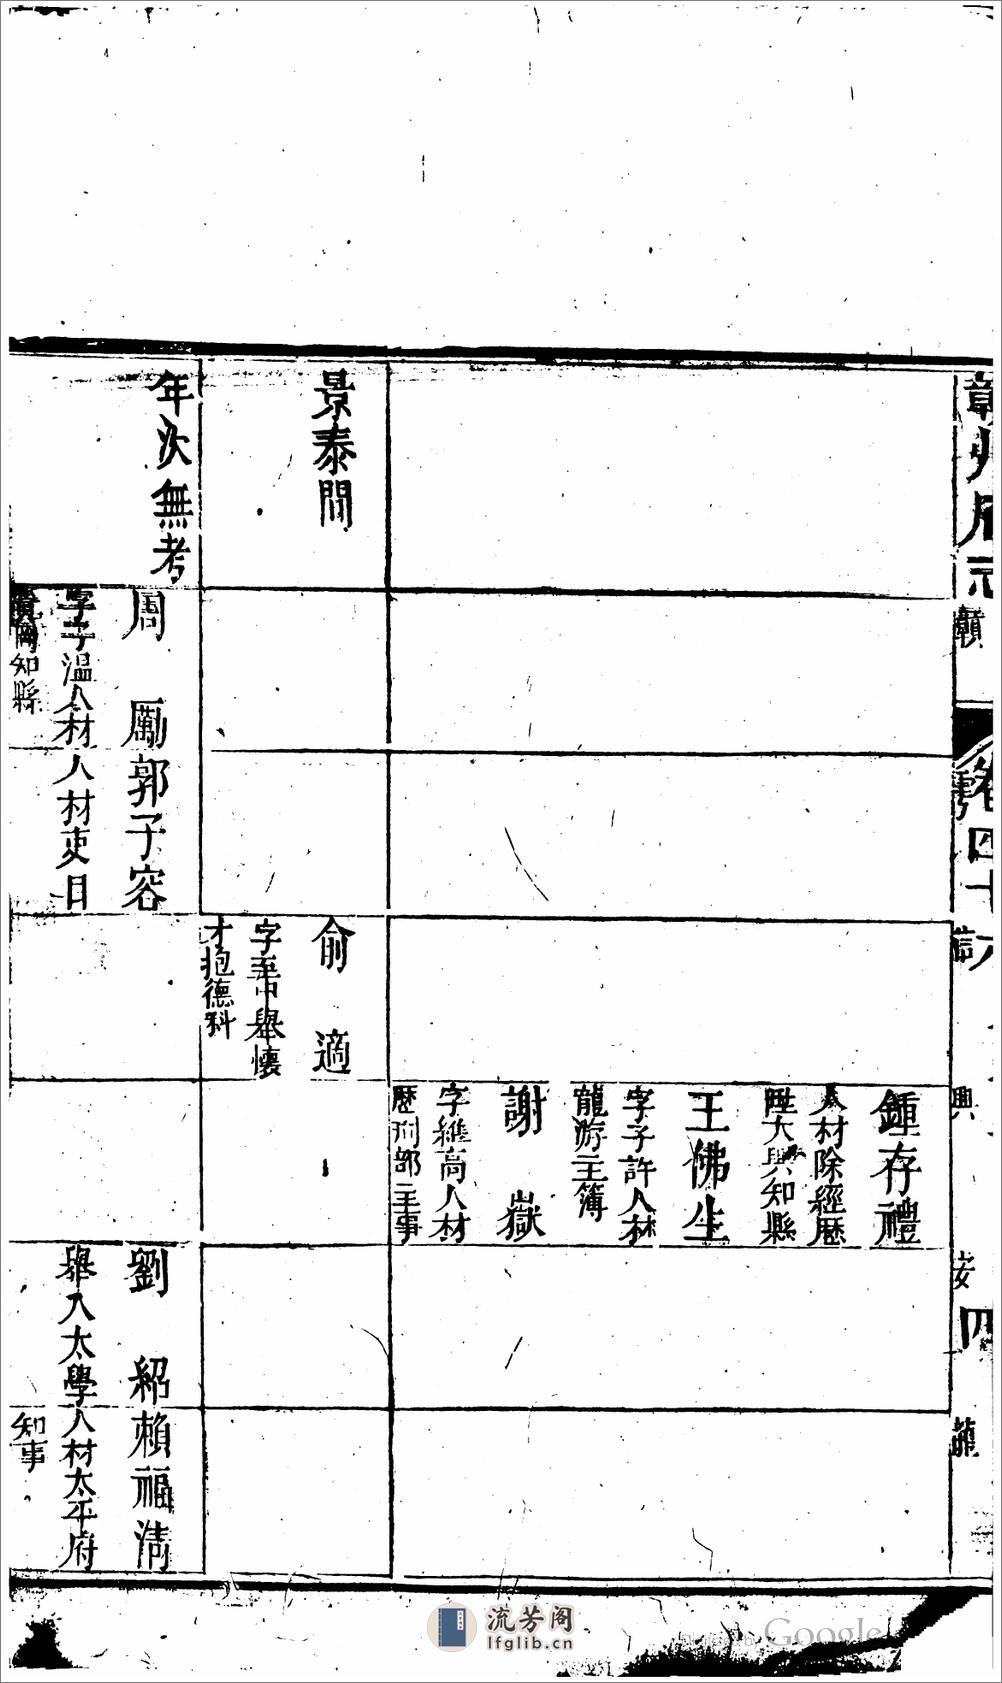 贛州府志
卷四十六
贛
雩
信
興
安
龍
四
鍾存禮
人材除經歷
陞大興知縣
王佛生
字子許人材
龍游主簿
謝嶽
字維高人材
歷刑部主事
景泰間
俞適
字吾中舉懷
才抱德科
年次無考
周勵
字子温人材
知縣
郭子容
人材吏目
劉紹
舉入太學
賴福清
人材太平府
知事
流芳阁
lfglib.cn
Digitized by Google